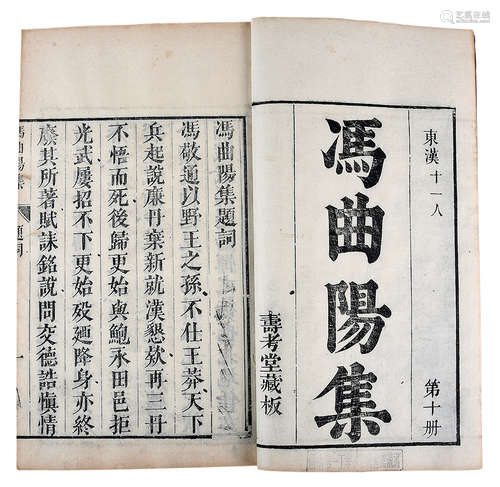 東漢十一人
第十册
馮曲陽集
壽考堂藏板
馮曲陽集題詞
馮敬通以野王之孫不仕王莽天下
兵起說廉丹棄新就漢懇欵再三丹
不悟而死後歸更始與鮑永田邑拒
光武屢招不下更始歿廼降身亦終
廢其所著賦誄銘說問交德誥愼情
馮曲陽集
題詞
一